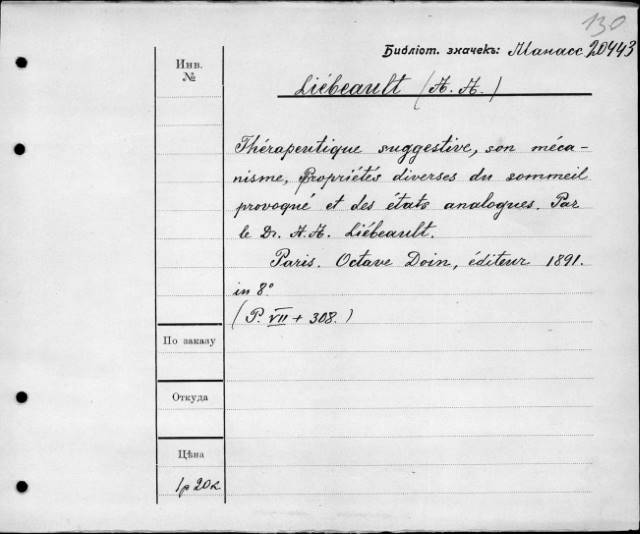 130
Библіот. значекъ: Манасс 20443
Инв.
№
Liébeault (A. A.)
Thérapeutique suggestive, son méca-
nisme, Propriétés diverses du sommeil
provoqué et des états analogues. Par
le Dr. A. A. Liébeault.
Paris. Octave Doin, éditeur 1891.
in 8°
(P. VII + 308.)
По заказу
Откуда
Цѣна
1р 20к